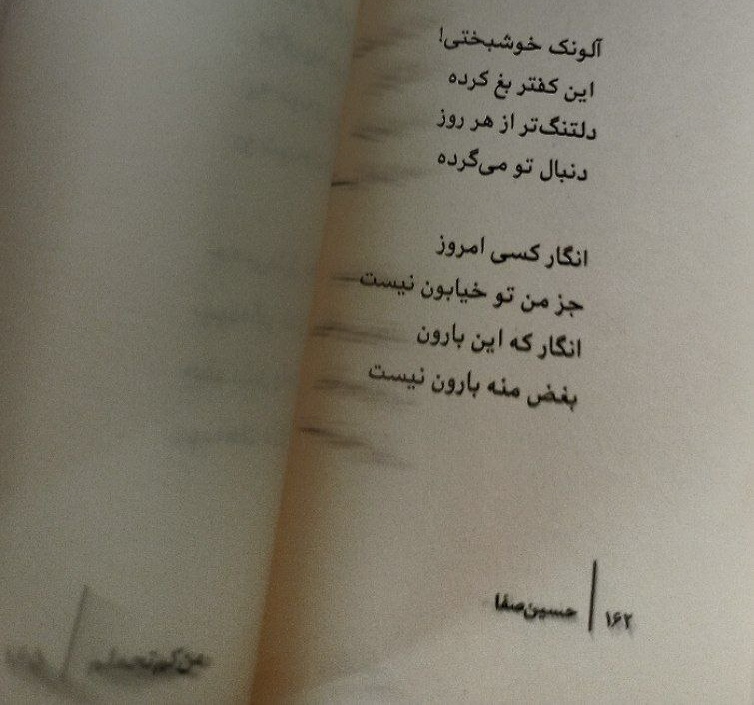 آلونک خوشبختی!
این کفتر بغ کرده
دلتنگ‌تر از هر روز
دنبال تو می‌گرده
انگار کسی امروز
جز من تو خیابون نیست
انگار که این بارون
بغض منه بارون نیست
۱۶۲ | حسین صفا